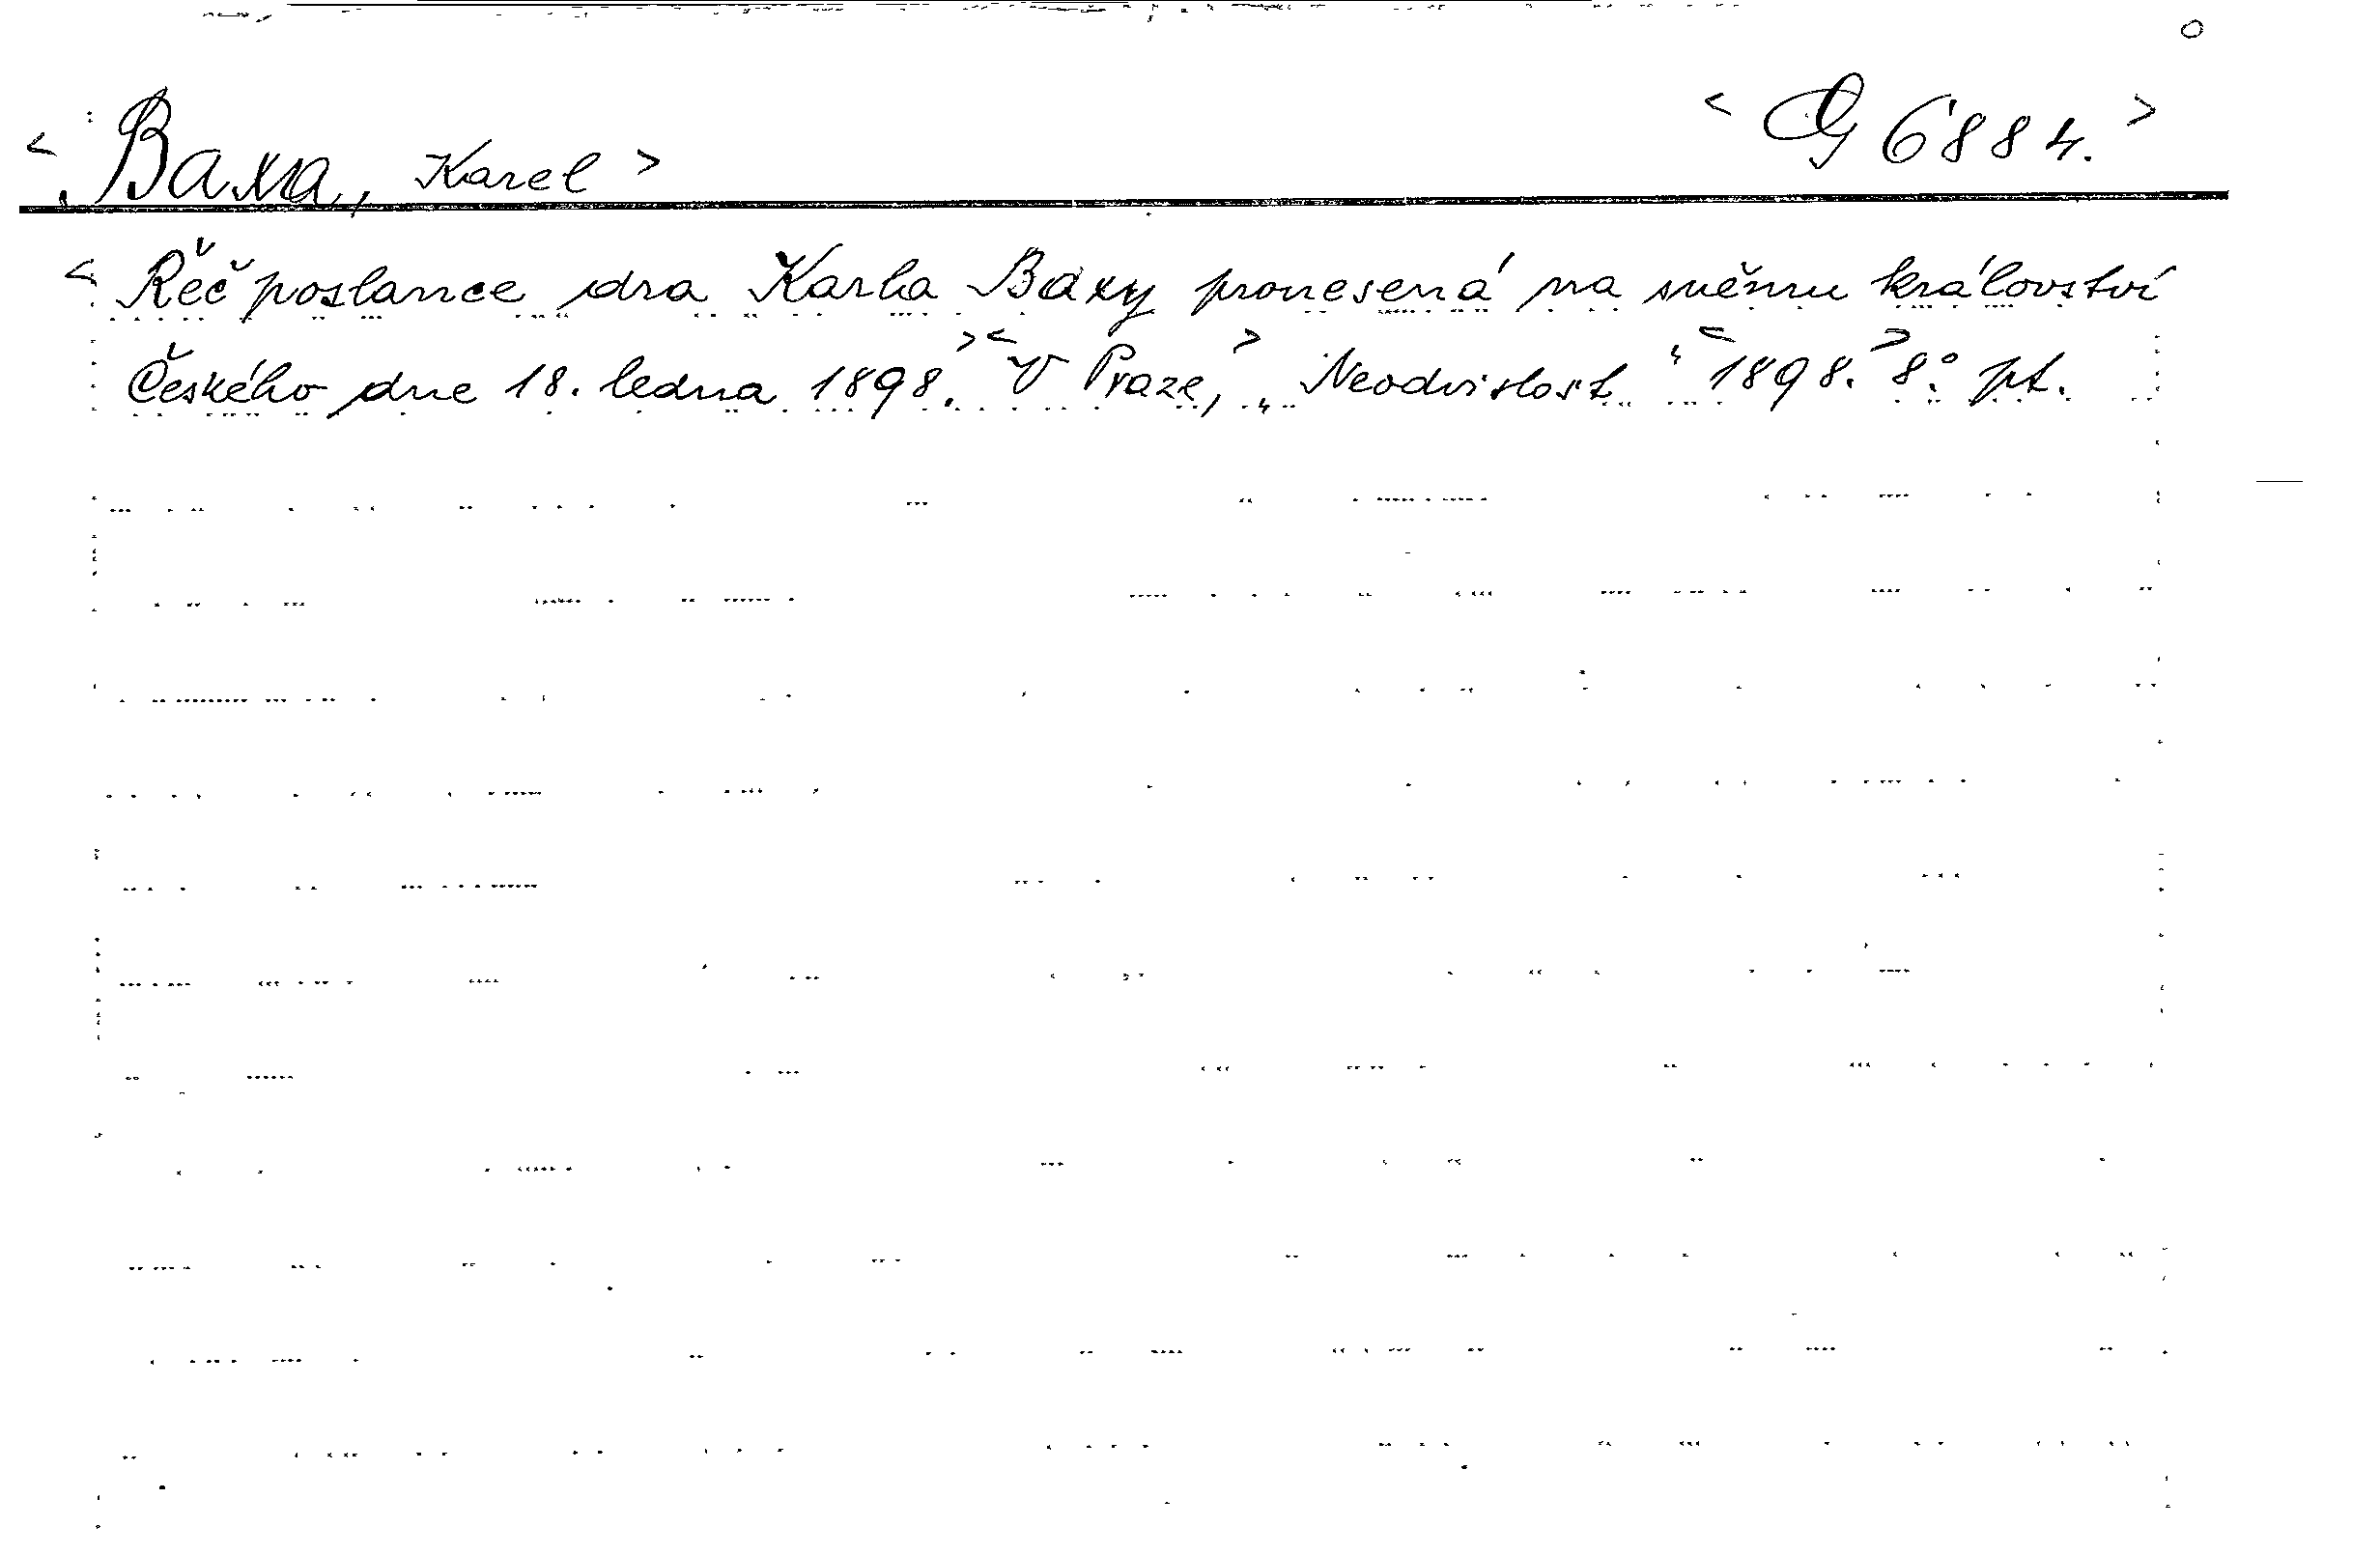 < Baxa, Karel > < G 6884. >
< Řeč poslance dra Karla Baxy pronesená na sněmu království
Českého dne 18. ledna 1898. > < V Praze, > „Neodvislost“ < 1898. > 8.° pt.